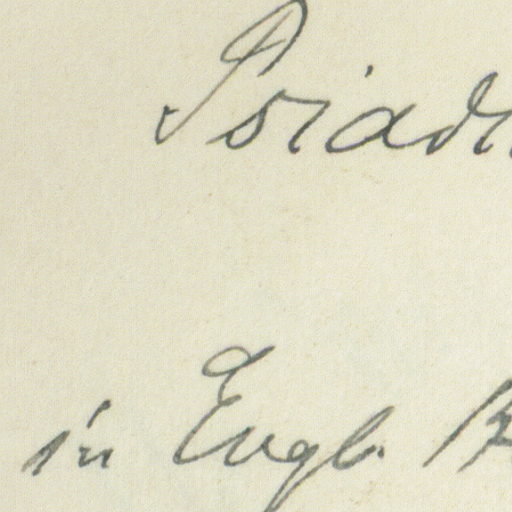 Psiadi
in Engl. B